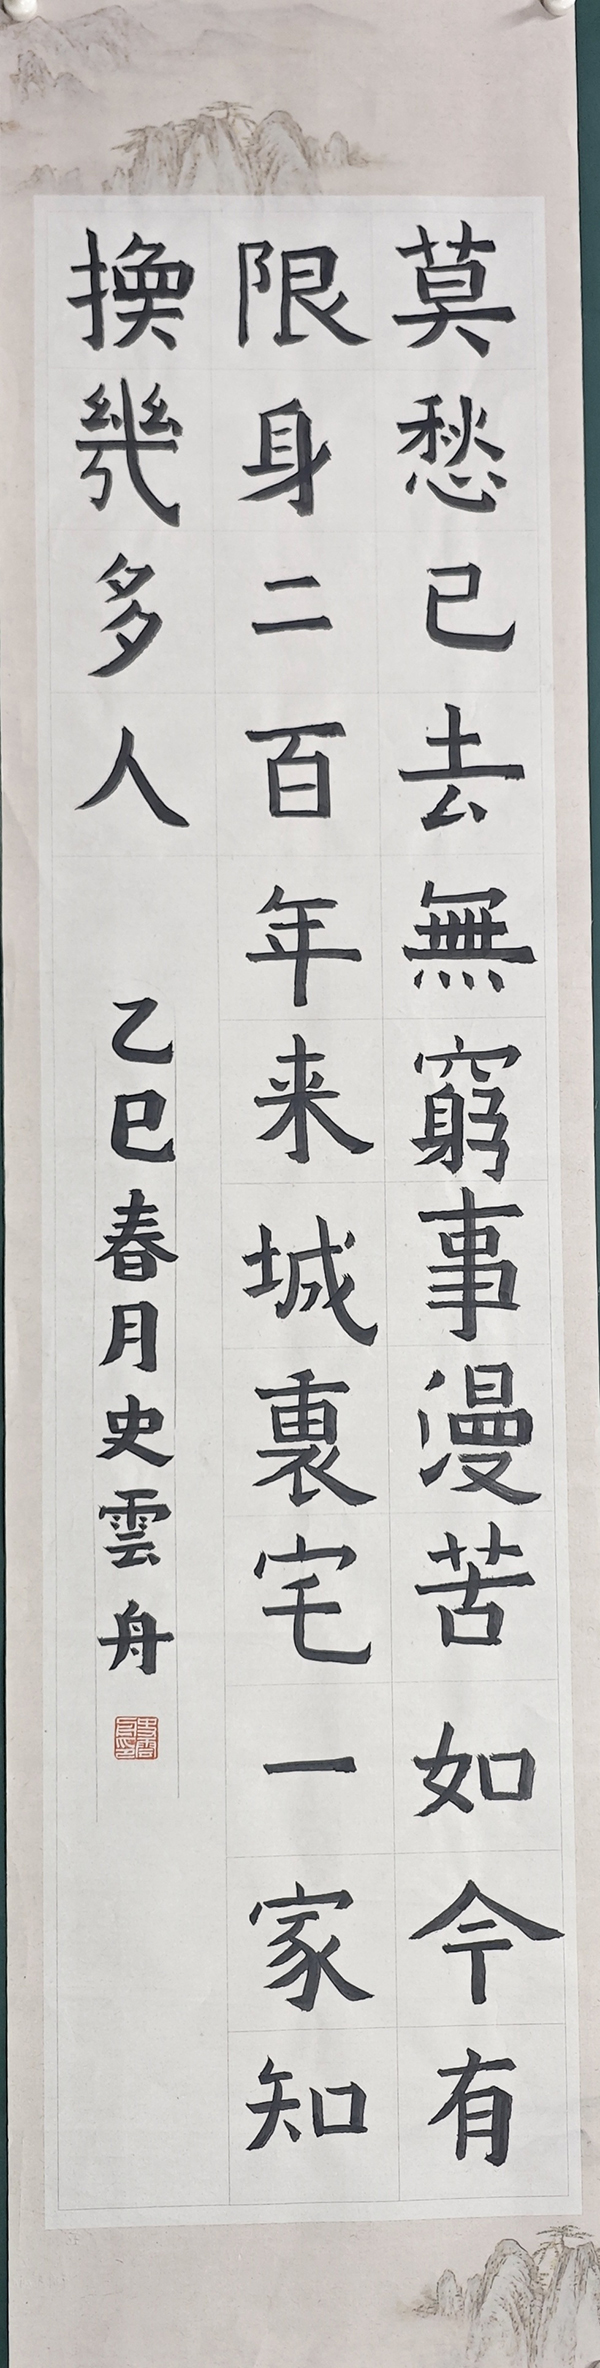 莫愁已去無窮事漫苦如今有
限身二百年来城裏宅一家知
換幾多人
乙巳春月史雲舟